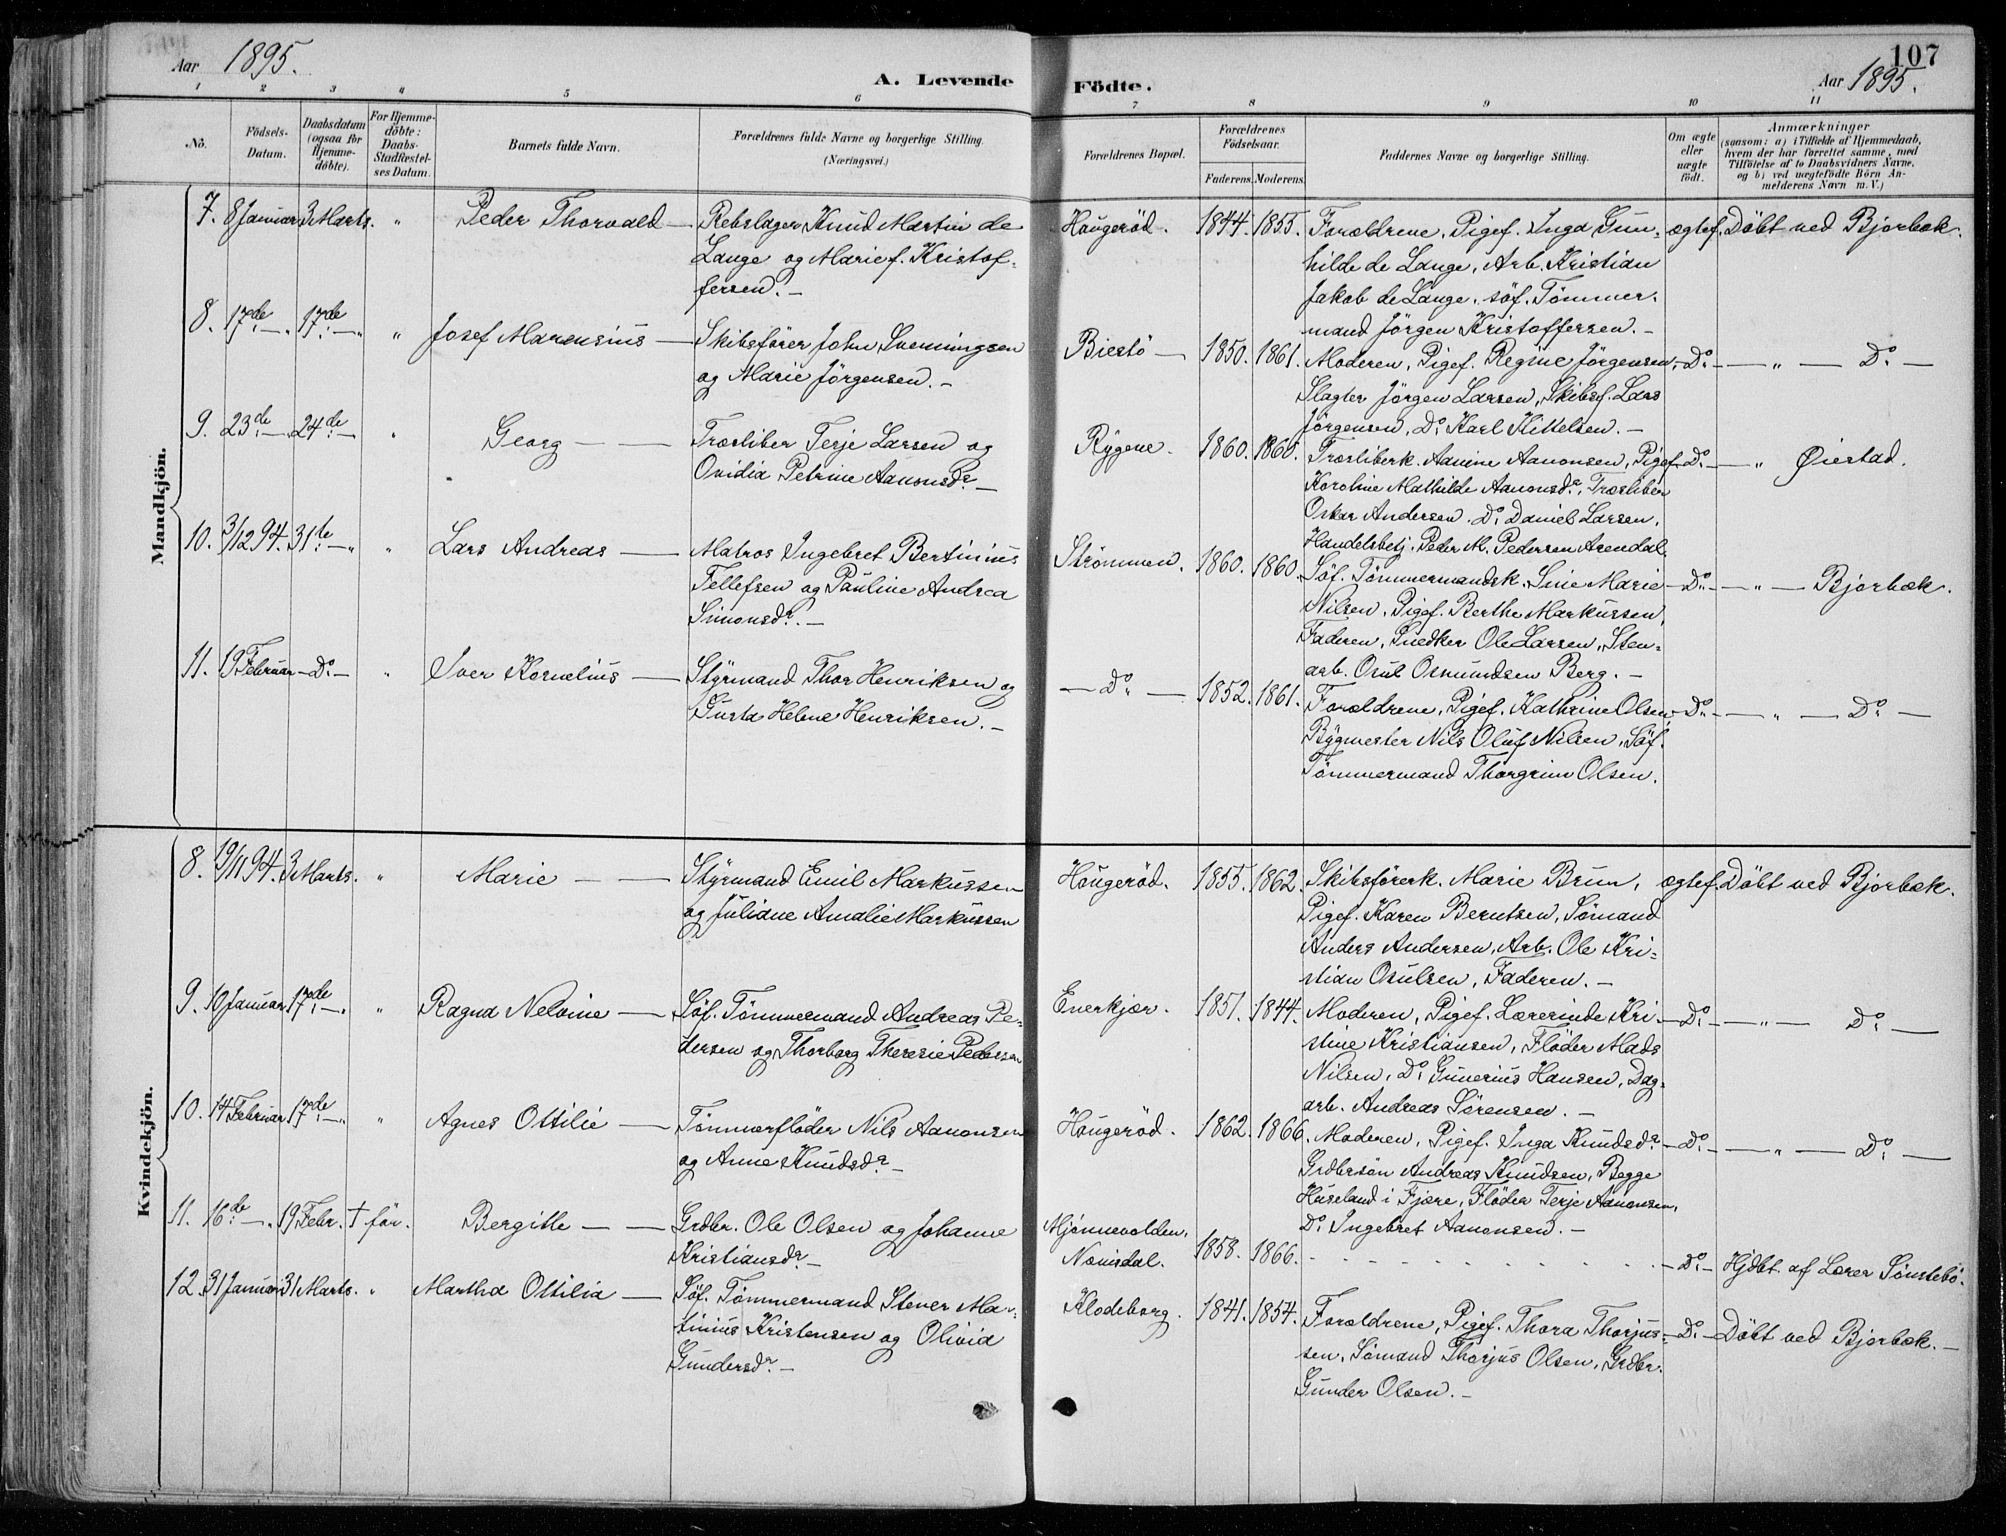 Aar 1895.
A. Levende
Födte.
107
Aar 1895.
1 2 3 4 5 6 7 8 9 10 11
No.
Födsels-Datum.
Daabsdatum (ogsaa for Hjemme-döbte).
For Hjemme-döbte: Daabs-Stadfæstel-ses Datum.
Barnets fulde Navn.
Forældrenes fulde Navne og borgerlige Stilling. (Næringsvei.)
Forældrenes Bopæl.
Forældrenes Födselsaar.
Faderens. Moderens.
Faddernes Navne og borgerlige Stilling.
Om ægte eller uægte födt.
Anmærkninger
(saasom: a) i Tilfælde af Hjemmedaab,
hvem der har forrettet samme, med
Tilföielse af to Daabsvidners Navne,
og b) ved uægtefödte Börn An-
melderens Navn m. V.)
Mandkjön.
7. 8 Januar 3 Marts. " Peder Thorvald — Rebslager Knud Martin de
Lange og Marie f. Kristof-
fersen. —
Hougeröd. 1844. 1855. Forældrene, Pigef. Inga Gun-
hilde de Lange, Arb. Kristian
Jakob de Lange, söf. Tömmer-
mand Jörgen Kristoffersen. —
ægtef. Döbt ved Bjorbæk.
8. 17de — " 17de — " " Josef Marensius — Skibsförer John Svenningsen
og Marie Jörgensen. —
Biestö — 1850. 1861. Moderen, Pigef. Regine Jörgensen,
Slagter Jörgen Larsen, Skibsf. Lars
Jörgensen, Do Karl Kittelsen. —
Do — " — Do —
9. 23de — 24de — " Georg — — Træsliber Terje Larsen og
Ovidia Petrine Aanonsdr —
Rygene. 1860. 1860. Træsliberk. Aanine Aanonsen, Pigef.
Karoline Mathilde Aanonsdr, Træsliber
Oskar Andersen, Do Daniel Larsen,
Handelsbetj. Peder M. Pedersen Arendal.
Do — " Øiestad.
10. 3/12 94. 31te — " " Lars Andreas — Matros Ingebret Bertinius
Tellefsen og Pauline Andrea
Simonsdr. —
Strömmen. 1860. 1860. Söf. Tömmermandsk. Sine Marie
Nilsen, Pigef. Berthe Markussen,
Faderen, Snedker Ole Larsen, Sten-
arb. Osul Osmundsen Berg. —
Do — " — Bjorbæk.
11. 19 Februar — Do — " Iver Kornelius — Styrmand Thor Henriksen og
Gusta Helene Henriksen. —
— Do — 1852. 1861. Forældrene, Pigef. Kathrine Olsen,
Bygmester Nils Oluf Nilsen, Söf.
Tömmermand Thorgrim Olsen.
Do — " — Do —
Kvindekjön.
8. 19/11 94. 3 Marts. " Marie — — Styrmand Emil Markussen
og Juliane Amalie Markussen
Hougeröd. 1855. 1862. Skibsförerk. Marie Brun,
Pigef. Karen Berntsen, Sömand
Anders Andersen, Arb. Ole Kri-
stian Osulsen, Faderen. —
ægtef. Döbt ved Bjorbæk.
9. 10 Januar 17de — " " Ragna Nelvine — Söf. Tömmermand Andreas Pe-
dersen og Thorborg Theresie Pedersen
Enerkjær. 1851. 1844. Moderen, Pigef. Lærerinde Kri-
stine Kristiansen, Flöder Mads
Nilsen, Do Gunerius Hansen, Dag-
arb. Andreas Sörensen. —
Do — " — Do —
10. 14 Februar 17de — " " Agnes Ottilie — Tömmerflöder Nils Aanonsen
og Anne Knudsdr —
Hougeröd. 1862. 1866. Moderen, Pigef. Inga Knudsdr
Grdbrsön Andreas Knudsen, Begge
Huseland i Fjære, Flöder Terje Aanonsen,
Do Ingebret Aanonsen. —
Do — " — Do —
11. 16de — " 19 Febr. † för. Bergitte — — Grdbr. Ole Olsen og Johanne
Kristiansdr —
Mjönnevolden,
Nomsdal. 1858. 1866. — Do — Hjdbt. af Lærer Sönstebö.
12. 31 Januar 31 Marts. " Martha Ottilia — Söf. Tömmermand Stener Ma-
tinius Kristensen og Olivia
Gundersdr —
Klodeborg. 1841. 1854. Forældrene, Pigef. Thora Thorjus-
sen, Sömand Thorjus Olsen, Grdbr.
Gunder Olsen. —
Do — Döbt ved Bjorbæk. —